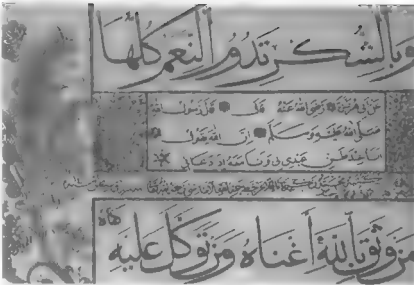 وبالشكر تدوم النعم كلها
عن أبي هريرة رضي الله عنه قال قال رسول الله
صلى الله عليه وسلم إن الله يقول
أنا عند ظن عبدي بي وأنا معه إذا دعاني
من وثق بالله أغناه ومن توكل عليه
كفاه